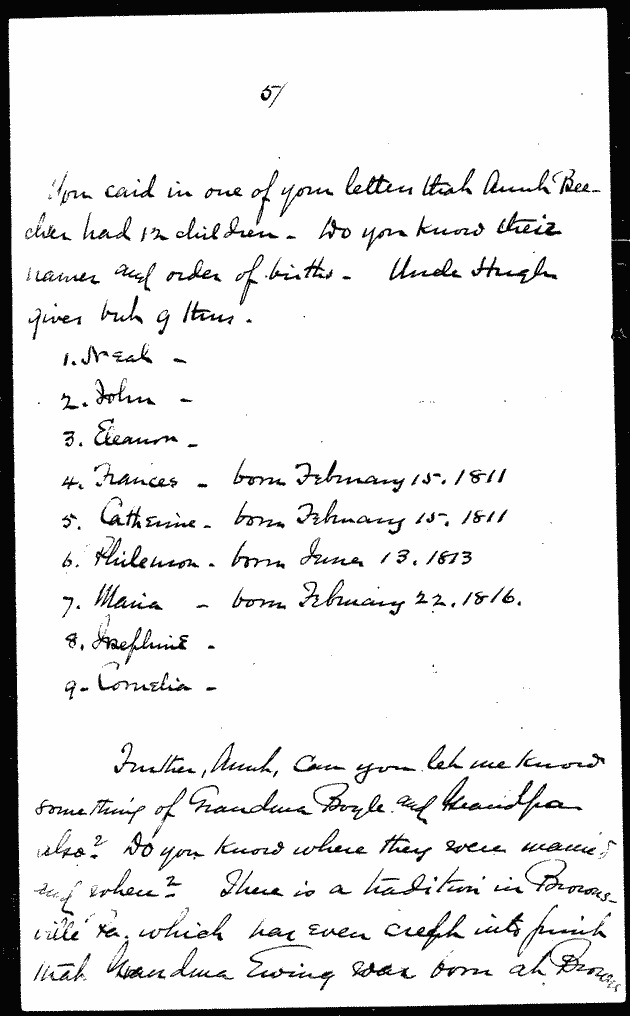 5/
You said in one of your letters that Aunt Bee-
cher had 12 children - Do you know their
names and order of births - Uncle Hugh
gives but 9 thus -
1. Neal -
2. John -
3. Eleanor -
4. Frances - born February 15. 1811
5. Catherine - born February 15. 1811
6. Philemon - born June 13. 1813
7. Maria - born February 22. 1816.
8. Josephine -
9 - Cornelia -
Further, Aunt, can you let me know
something of Grandma Boyle and Grandpa
also? Do you know where they were married
and when? There is a tradition in Browns-
ville Pa. which has even crept into print
that Grandma Ewing was born at Browns